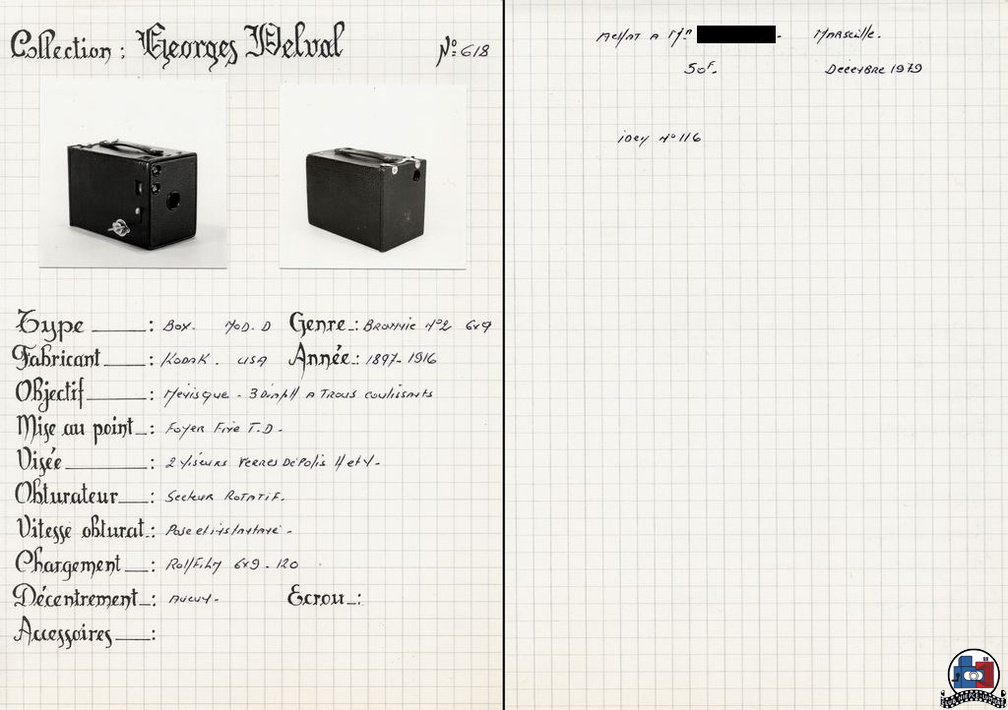 Collection : Georges Delval N°: 618
Type : Box. MOD. D Genre : Brownie N°2 6x9
Fabricant : KODAK. USA Année : 1897-1916
Objectif : Ménisque - 3 Diaph A Trous coulissants
Mise au point : Foyer Fixe T.D.
Visée : 2 Viseurs Verres Dépolis H et V.
Obturateur : Secteur Rotatif.
Vitesse obturat. : Pose et instantané.
Chargement : RollFilm 6x9 - 120
Décentrement : Aucun. Ecrou :
Accessoires :
Achat A Mr Marseille.
50F. Décembre 1979
N°116